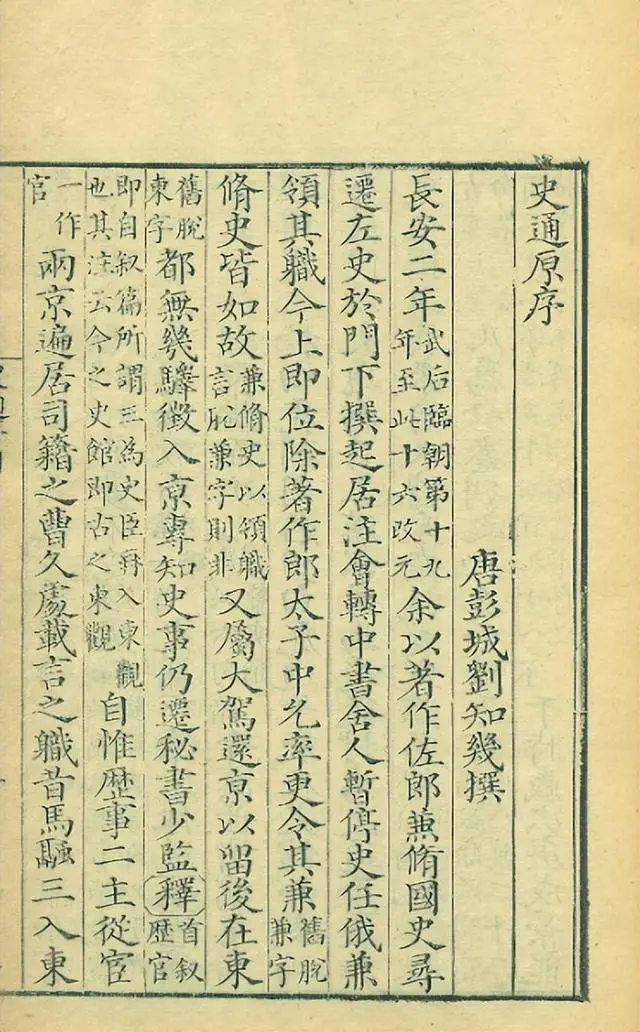 史通原序
唐彭城劉知幾撰
長安二年武后臨朝第十九年至此十六改元余以著作佐郎兼脩國史尋
遷左史於門下撰起居注會轉中書舍人暫停史任俄兼
領其職今上即位除著作郎太子中允率更令其兼舊脫兼字
脩史皆如故兼脩史以領職言脫兼字則非又屬大駕還京以留後在東
舊脫東字都無幾驛徵入京專知史事仍遷秘書少監釋首叙歴官
即自叙篇所謂三為史臣再入東觀也其注云今之史館即古之東觀自惟歴事二主從宦
一作官兩京遍居司籍之曹久處載言之職昔馬融三入東